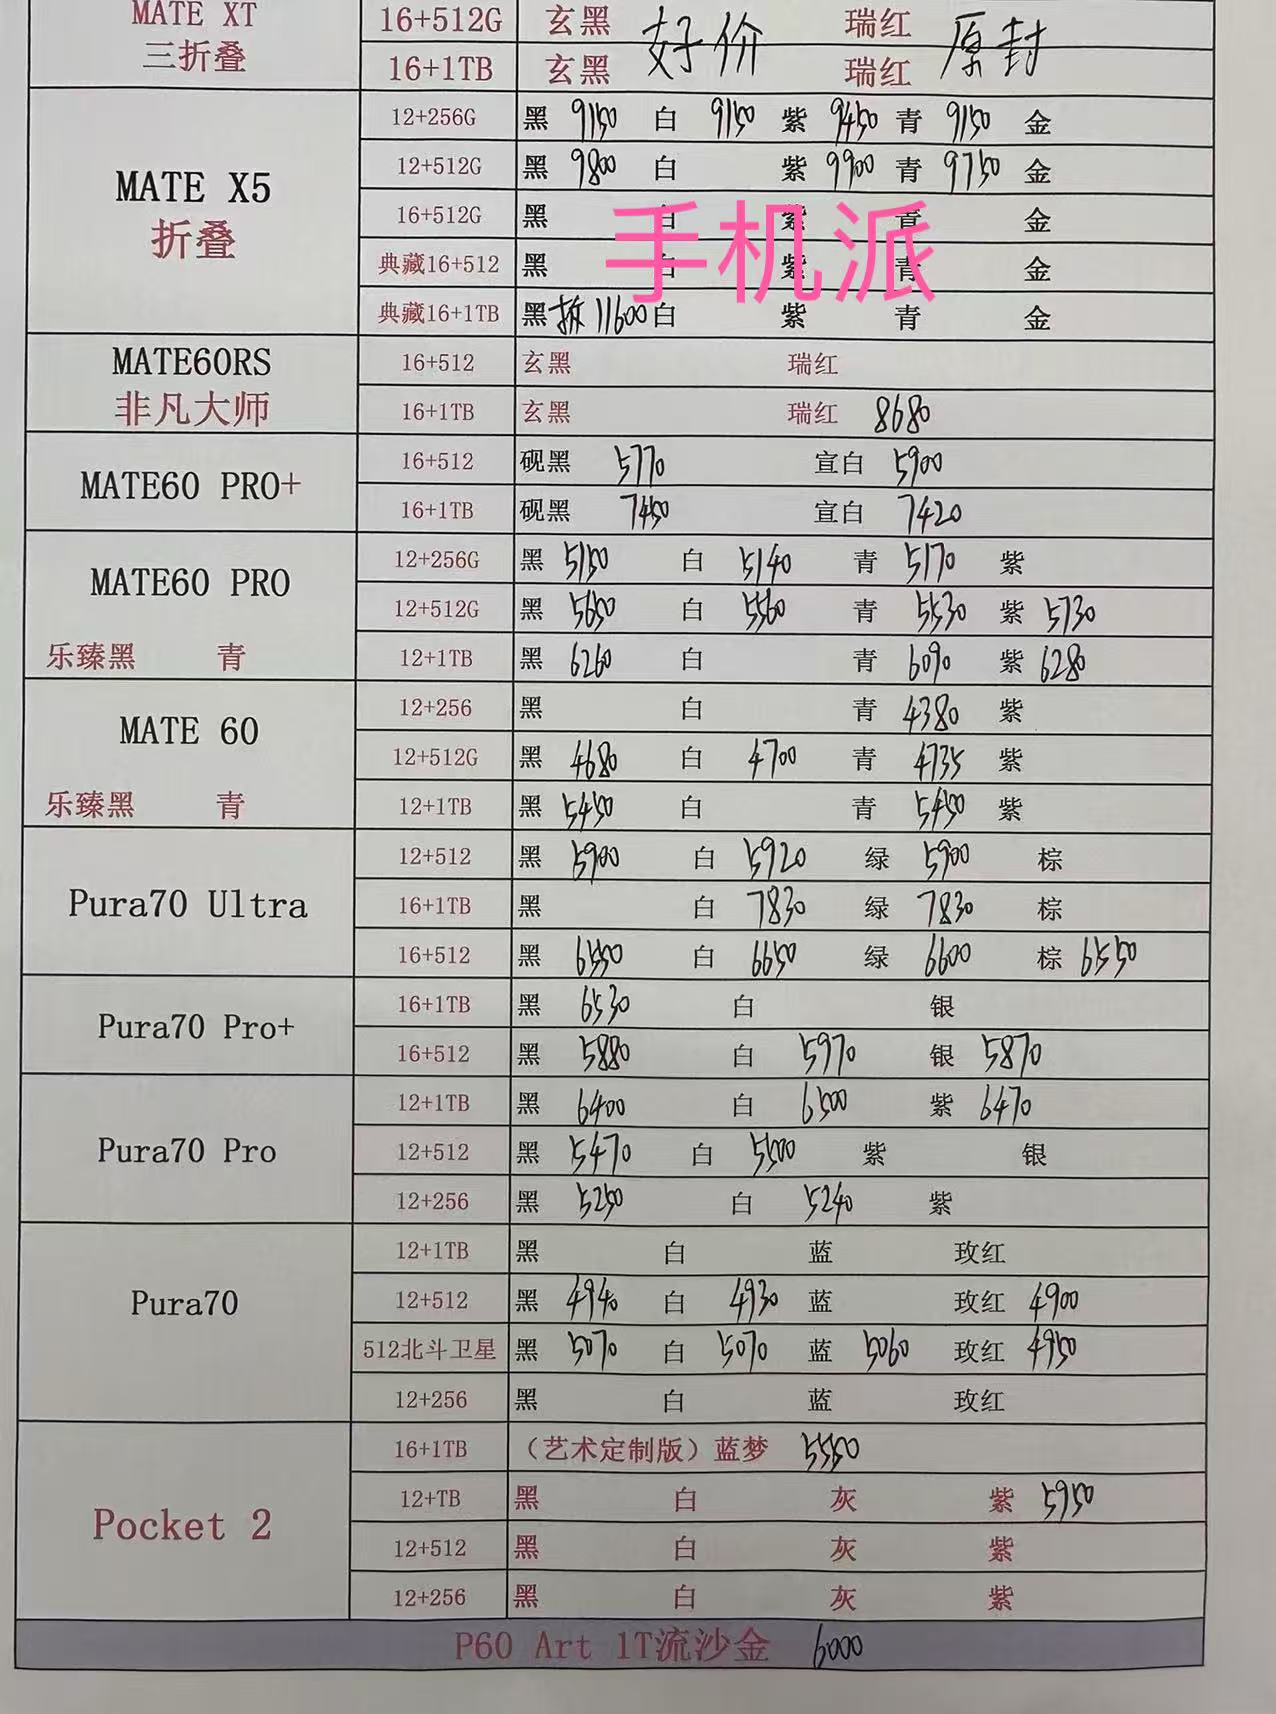 MATE XT 16+512G 玄黑 好价 瑞红 原封
三折叠 16+1TB 玄黑 瑞红
12+256G 黑 9150 白 9150 紫 9450 青 9150 金
MATE X5 12+512G 黑 9800 白 紫 9900 青 9750 金
折叠 16+512G 黑 白 紫 青 金
手机派
典藏16+512 黑 白 紫 青 金
典藏16+1TB 黑 拆 11600 白 紫 青 金
MATE60RS 16+512 玄黑 瑞红
非凡大师 16+1TB 玄黑 瑞红 8680
MATE60 PRO+ 16+512 砚黑 5770 宣白 5900
16+1TB 砚黑 7450 宣白 7420
MATE60 PRO 12+256G 黑 5150 白 5140 青 5170 紫
12+512G 黑 5650 白 5560 青 5530 紫 5730
乐臻黑 青 12+1TB 黑 6260 白 青 6090 紫 6280
MATE 60 12+256 黑 白 青 4380 紫
12+512G 黑 4680 白 4700 青 4735 紫
乐臻黑 青 12+1TB 黑 5450 白 青 5450 紫
12+512 黑 5900 白 5920 绿 5900 棕
Pura70 Ultra 16+1TB 黑 白 7830 绿 7830 棕
16+512 黑 6550 白 6650 绿 6600 棕 6550
Pura70 Pro+ 16+1TB 黑 6530 白 银
16+512 黑 5880 白 5970 银 5870
12+1TB 黑 6400 白 6500 紫 6470
Pura70 Pro 12+512 黑 5470 白 5500 紫 银
12+256 黑 5250 白 5240 紫
12+1TB 黑 白 蓝 玫红
Pura70 12+512 黑 4940 白 4930 蓝 玫红 4900
512北斗卫星 黑 5070 白 5070 蓝 5060 玫红 4950
12+256 黑 白 蓝 玫红
16+1TB （艺术定制版）蓝梦 5550
Pocket 2 12+TB 黑 白 灰 紫 5950
12+512 黑 白 灰 紫
12+256 黑 白 灰 紫
P60 Art 1T流沙金 6000